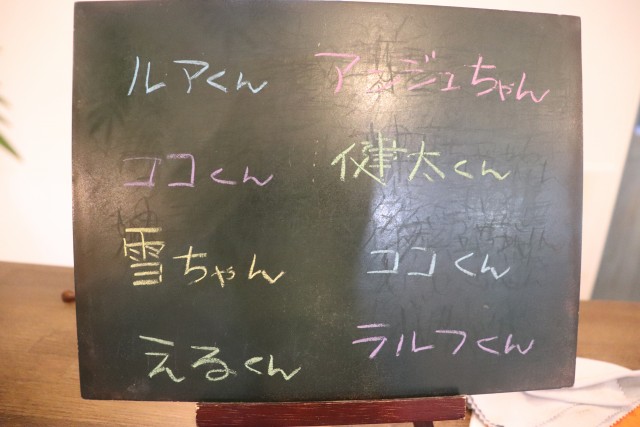 ルアくん
アッシュちゃん
ココくん
健太くん
雪ちゃん
コンくん
えるくん
ラルフくん